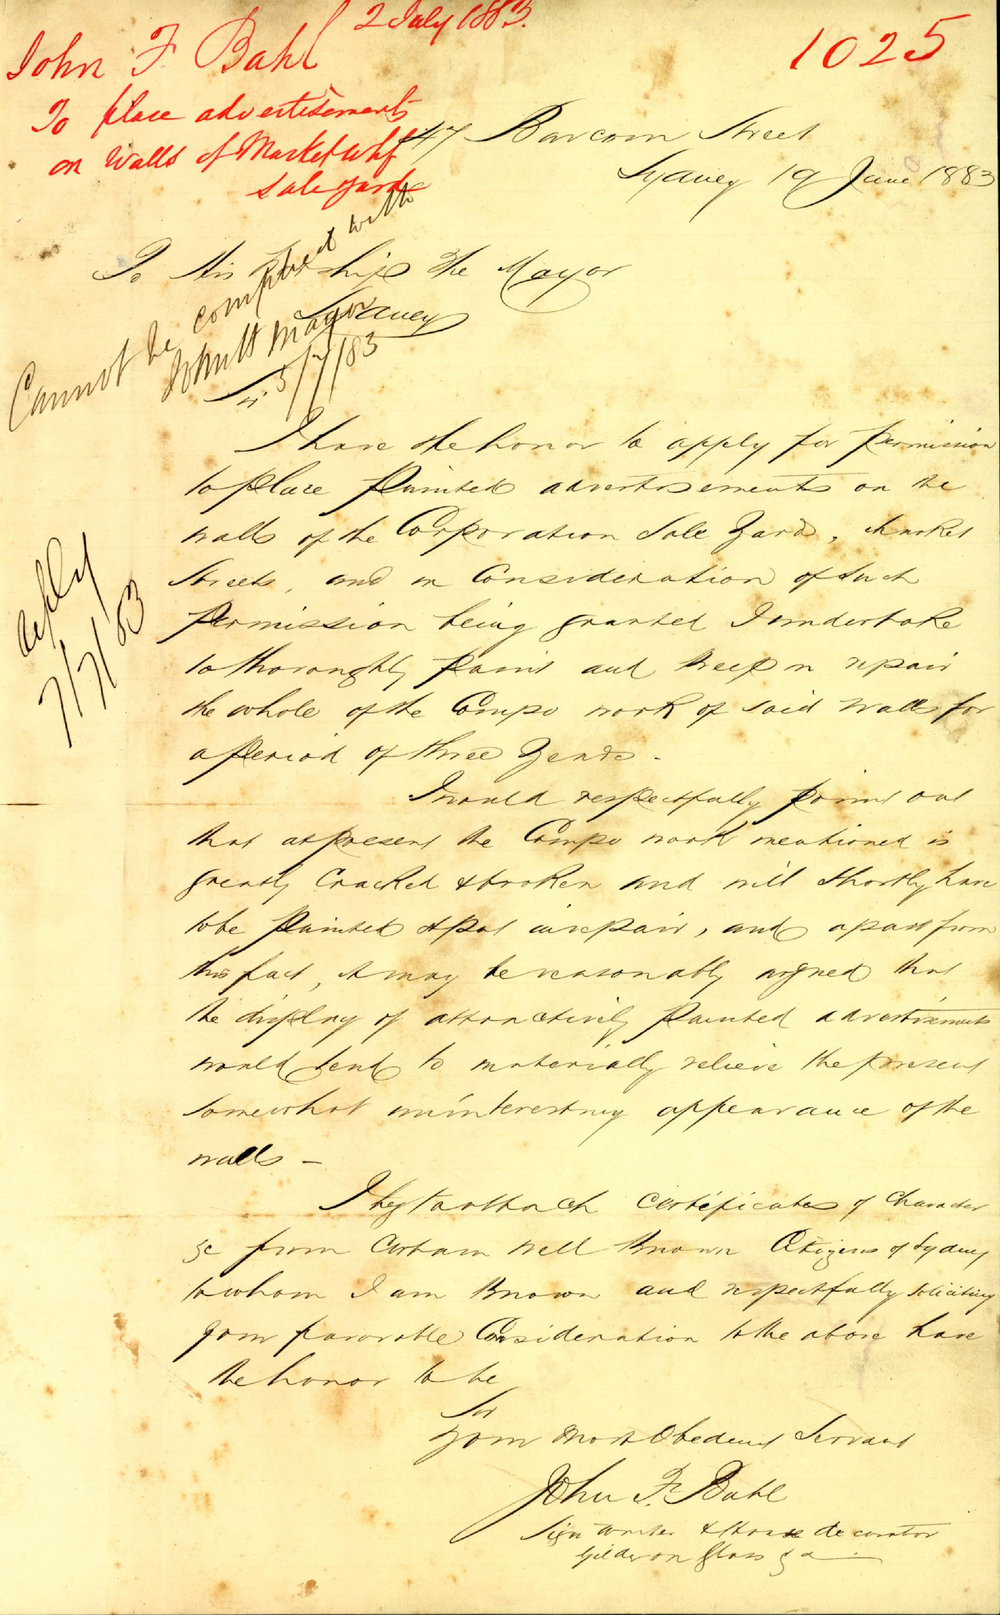 2 July 1883.
John F Bahl
1025
To place advertisements
on Walls of Market Whf
Sale yards
47 Barcom Street
Sydney 19 June 1883
To His Worship the Mayor
Sydney
Cannot be complied with
Mayor
3/7/83
Sir
I have the honor to apply for permission
to place Painted advertisements on the
walls of the Corporation Sale Yards, Market
Streets, and in Consideration of such
permission being granted I undertake
to thoroughly paint and keep in repair
the whole of the Compo work of said walls for
a period of three Years.
reply
7/7/83
I would respectfully point out
that at present the Compo work mentioned is
greatly Cracked & broken and will shortly have
to be Painted & put in repair, and apart from
this fact, it may be reasonably argued that
the display of attractively painted advertisements
would tend to materially relieve the present
somewhat uninteresting appearance of the
walls —
I beg to attach Certificates of Character
&c from Certain well Known Citizens of Sydney
to whom I am Known and respectfully soliciting
your favorable Consideration to the above have
the honor to be
Sir
Your Most Obedient Servant
John F. Bahl
Sign Writer & House decorator
Gilder on Glass &c